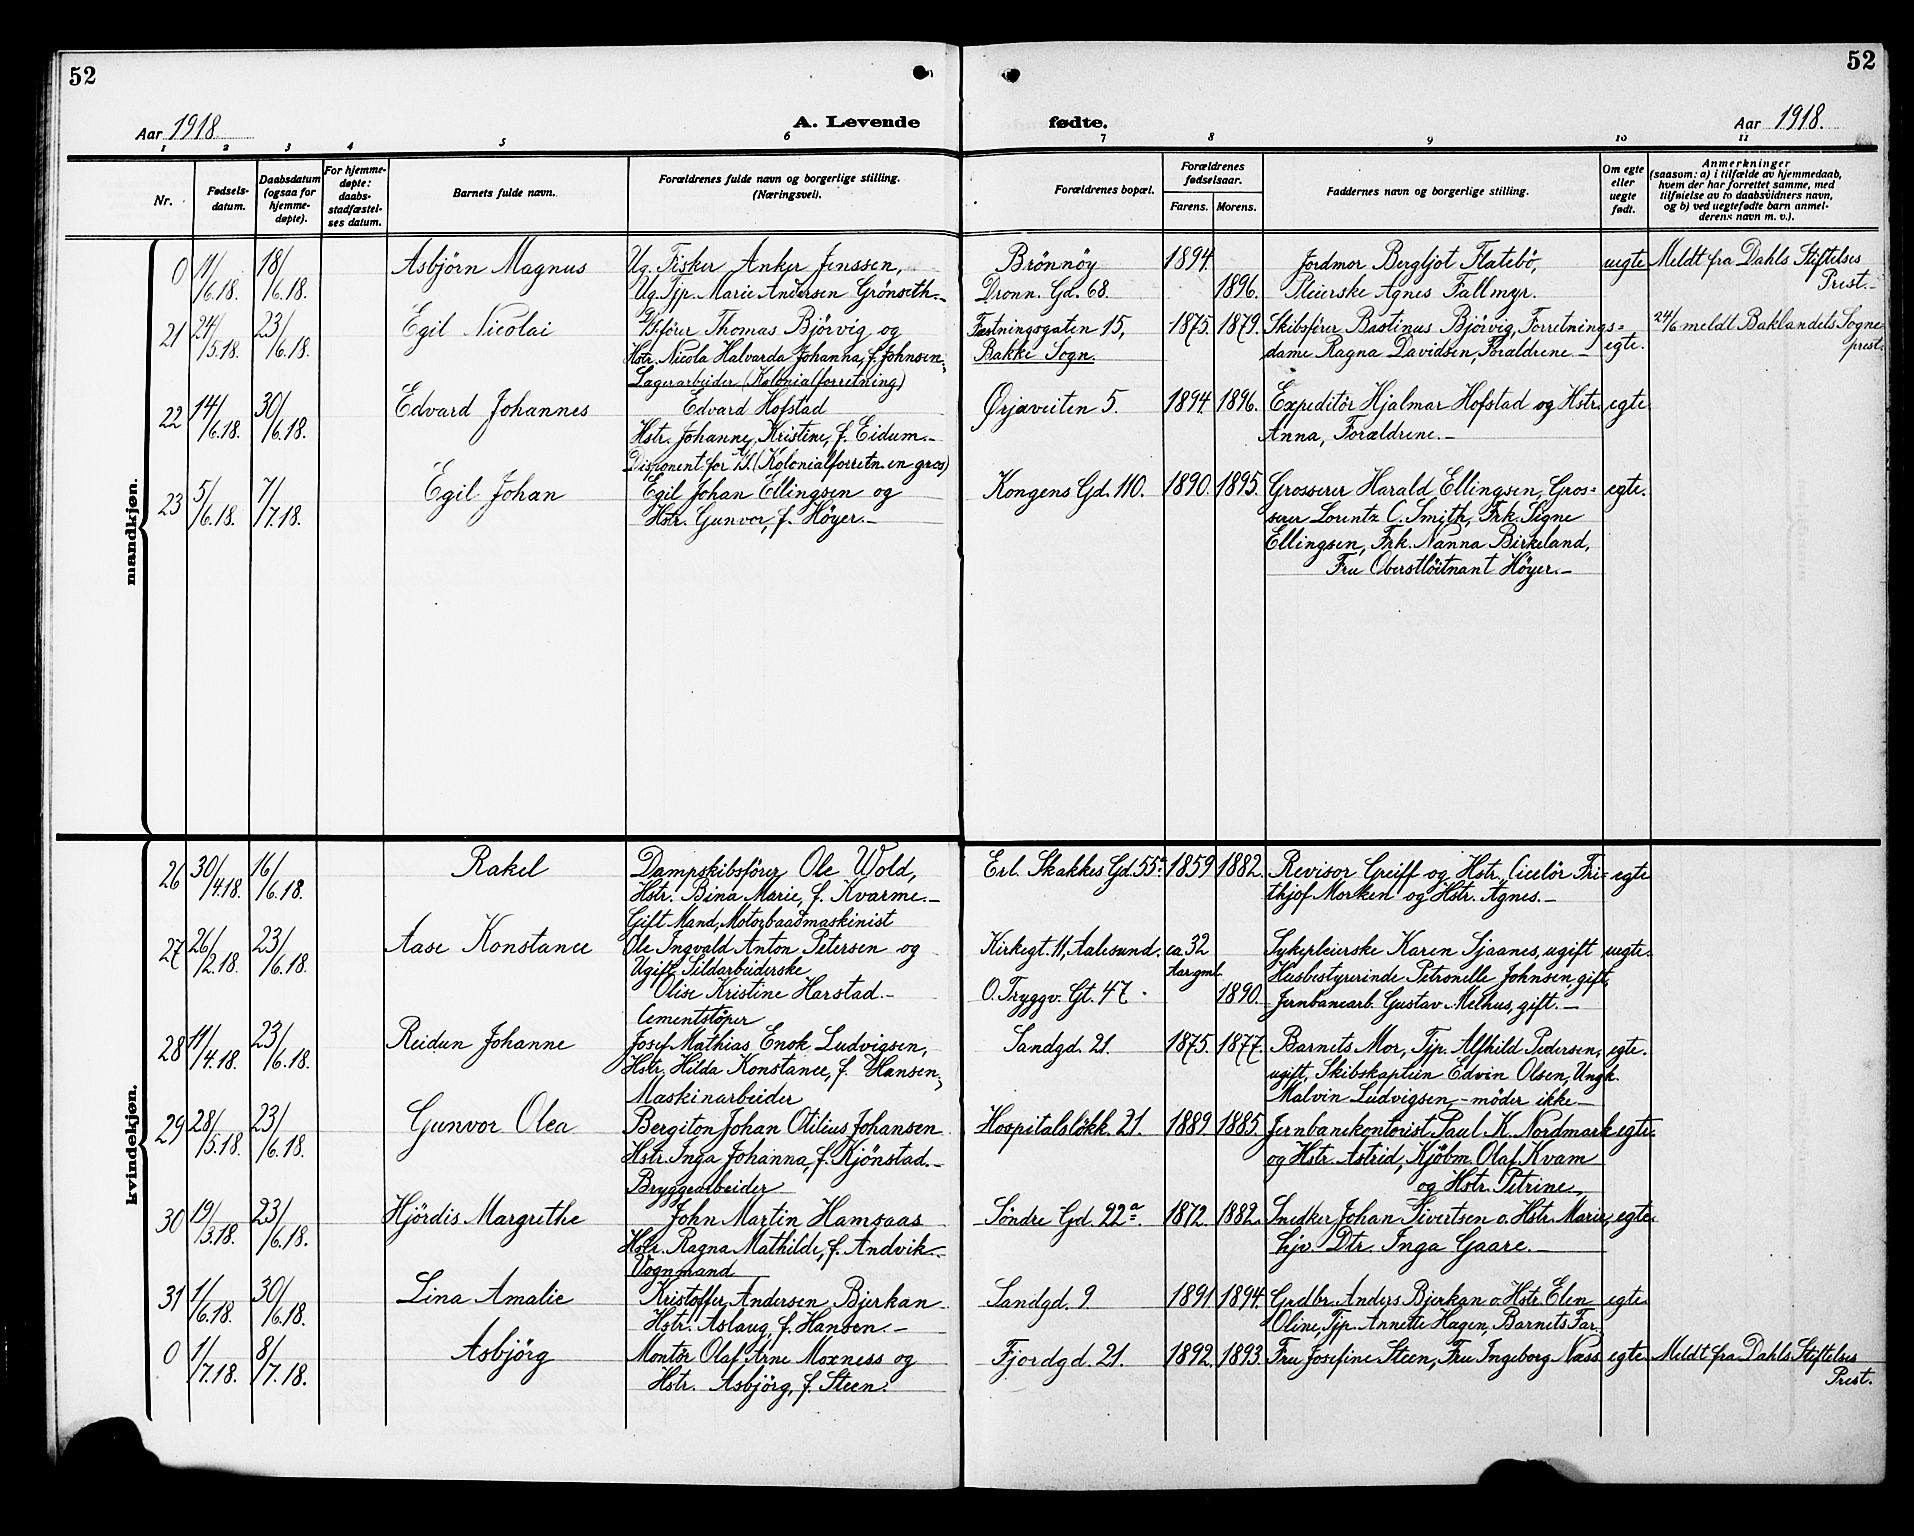 52
52
Aar 1918.
A. Levende
fødte.
Aar 1918.
1 2 3 4 5 6 7 8 9 10 11
Nr.
Fødsels-
datum.
Daabsdatum
(ogsaa for
hjemme-
døpte).
For hjemme-
døpte:
daabs-
stadfæstel-
ses datum.
Barnets fulde navn.
Forældrenes fulde navn og borgerlige stilling.
(Næringsvei).
Forældrenes bopæl.
Forældrenes
fødselsaar.
Farens. Morens.
Faddernes navn og borgerlige stilling.
Om egte
eller
uegte
født.
Anmerkninger
(saasom: a) i tilfælde av hjemmedaab,
hvem der har forrettet samme, med
tilføielse av to daabsvidners navn,
og b) ved uegtefødte barn anmel-
derens navn m. v.).
mandkjøn.
0 11/6.18. 18/6.18. Asbjörn Magnus Ug. Fisker Anker Jenssen, Brönnöy 1894. Jordmor Bergljot Flatebö, uegte Meldt fra Dahls Stiftelses
Ug. Tjp. Marie Andersen Grönseth.- Dronn. Gd. 68. 1896. Pleierske Agnes Fallmyr. Prest.-
21 24/5.18. 23/6.18. Egil Nicolai Thomas Björvig og Festningsgaten 15, 1875. 1879. Skibsförer Bastinus Björvig, Forretnings= egte. 24/6 meldt Baklandets Sogne
Hstr. Nicola Halvarda Johanna, f. Johnsen, Bakke Sogn. dame Ragna Davidsen, Forældrene.- prest.
Lagerarbeider (Kolonialforretning)
22 14/6.18. 30/6.18. Edvard Johannes Edvard Hofstad Ørjaveiten 5. 1894 1896. Expeditör Hjalmar Hofstad og Hstr. egte
Hstr. Johanne Kristine, f. Eidum.- Anna, Forældrene.-
Disponent for A/S. (Kolonialforretn. en gros)
23 5/6.18. 7/7.18. Egil Johan Egil Johan Ellingsen og Kongens Gd. 110. 1890. 1895. Grosserer Harald Ellingsen, Gros= egte.
Hstr. Gunvor, f. Höyer.- serer Lorentz C. Smith, Frk. Signe
Ellingsen, Frk. Nanna Birkeland,
Fru Oberstlöitnant Höyer.-
kvindekjøn.
26 30/4.18. 16/6.18. Rakel Dampskibsförer Ole Wold, Erl. Skakkes Gd. 55a 1859 1882. Revisor Greiff og Hstr., Ciselör Fri= egte
Hstr. Bina Marie, f. Kvarme.- thjof Morken og Hstr. Agnes.-
Gift Mand, Motorbaadmaskinist
27 26/2.18. 23/6.18. Aase Konstance Ole Ingvald Anton Petersen og Kirkegt. 11, Aalesund. ca 32 Sykepleierske Karen Sjaanes, ugift uegte.
Ugift Sildarbeiderske Aar gml. Husbestyrerinde Petronelle Johnsen, gift,
Olise Kristine Harstad.- O. Tryggv. Gt. 47. 1890. Jernbanearb. Gustav Melhus, gift.-
Cementstöper
28 11/4.18. 23/6.18. Reidun Johanne Josef Mathias Enok Ludvigsen, Sandgd. 21. 1875. 1877. Barnets Mor, Tjp. Alfhild Pedersen, egte.
Hstr. Hilda Konstance, f. Hansen, ugift, Skibskaptein Edvin Olsen, Ungk.
Maskinarbeider Malvin Ludvigsen, - möder ikke -
29 28/5.18. 23/6.18. Gunvor Olea Bergiton Johan Otilius Johansen Hospitalslökk. 21. 1889. 1885. Jernbanekontorist Paul K. Nordmark egte.
Hstr. Inga Johanna, f. Kjönstad.- og Hstr. Astrid, Kjöbm. Olaf Kvam
Bryggearbeider og Hstr. Petrine,
30 19/3.18. 23/6.18. Hjördis Margrethe John Martin Hamsaas Söndre Gd. 22a. 1872. 1882. Snedker Johan Sivertsen o. Hstr. Marie, egte.
Hstr. Ragna Mathilde, f. Andvik.- hjv. Dtr. Inga Gaare.-
Vognmand
31 1/6.18. 30/6.18. Lina Amalie Kristoffer Andersen Bjerkan Sandgd. 9 1891 1894. Grdbr. Anders Bjerkan o. Hstr. Elen egte.
Hstr. Aslaug, f. Hansen.- Oline, Tjp. Annette Hagen, Barnets Far.
0 1/7.18. 8/7.18. Asbjörg Montör Olaf Arne Moxness og Fjordgd. 21. 1892. 1893. Fru Josefine Steen, Fru Ingeborg Næss egte Meldt fra Dahls Stiftelses
Hstr. Asbjörg, f. Steen. Prest.